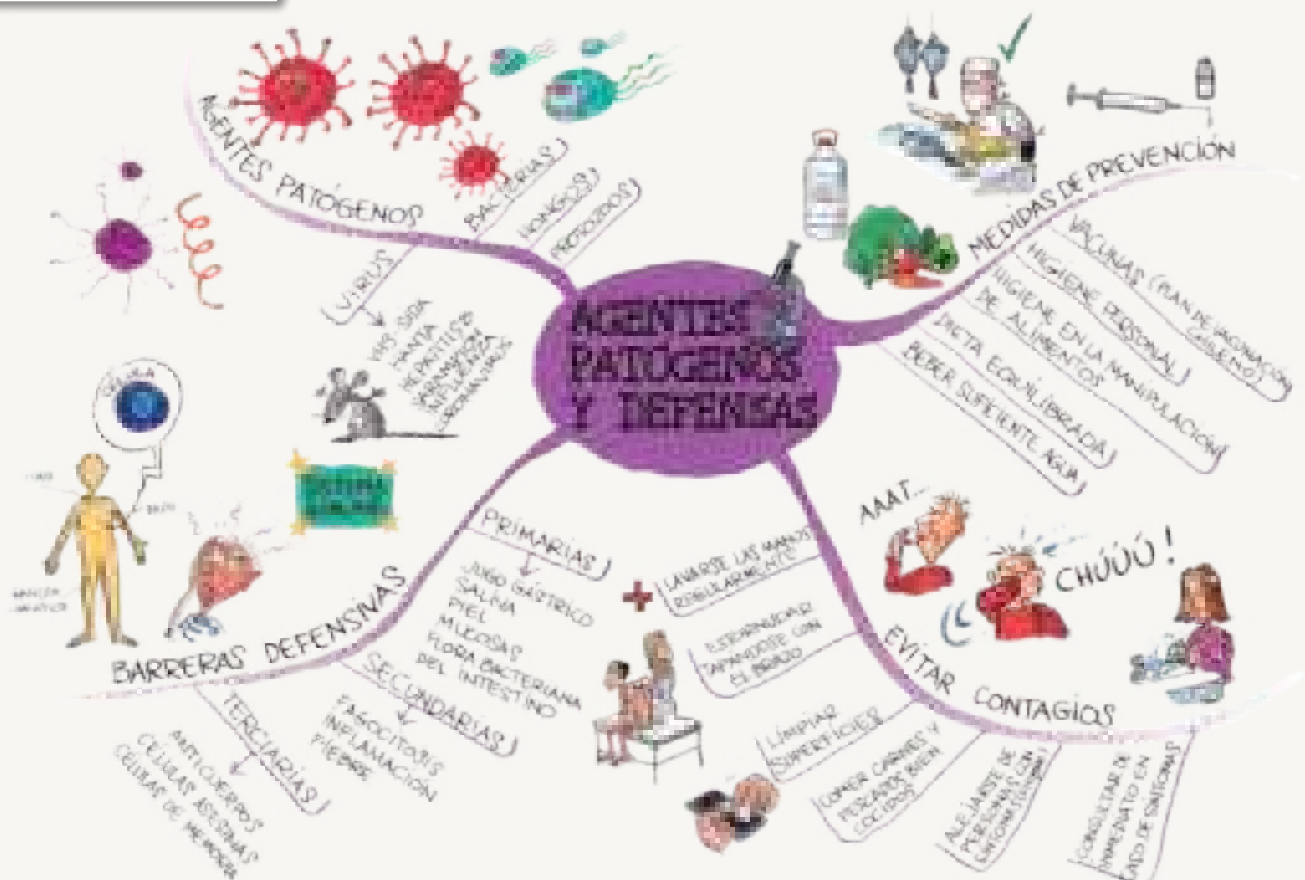 AGENTES
PATÓGENOS
Y DEFENSAS
AGENTES PATÓGENOS
BACTERIAS
HONGOS
PROTOZOOS
VIRUS
VIH-SIDA
HANTA
HEPATITIS B
SARAMPIÓN
INFLUENZA
CORONAVIRUS
MEDIDAS DE PREVENCIÓN
VACUNAS (PLAN DE VACUNACIÓN
CHILENO)
HIGIENE PERSONAL
HIGIENE EN LA MANIPULACIÓN
DE ALIMENTOS
DIETA EQUILIBRADA
BEBER SUFICIENTE AGUA
CÉLULA
SISTEMA
BARRERAS DEFENSIVAS
PRIMARIAS
JUGO GÁSTRICO
SALIVA
PIEL
MUCOSAS
FLORA BACTERIANA
DEL INTESTINO
SECUNDARIAS
FAGOCITOSIS
INFLAMACIÓN
FIEBRE
TERCIARIAS
ANTICUERPOS
CÉLULAS ASESINAS
CÉLULAS DE MEMORIA
EVITAR CONTAGIOS
AAAT...
CHÚÚÚ!
LAVARSE LAS MANOS
REGULARMENTE
ESTORNUDAR
TAPÁNDOSE CON
EL BRAZO
LIMPIAR
SUPERFICIES
COMER CARNES Y
PESCADOS BIEN
COCIDOS
ALEJARSE DE
PERSONAS CON
CONSULTAR DE
INMEDIATO EN
CASO DE SÍNTOMAS